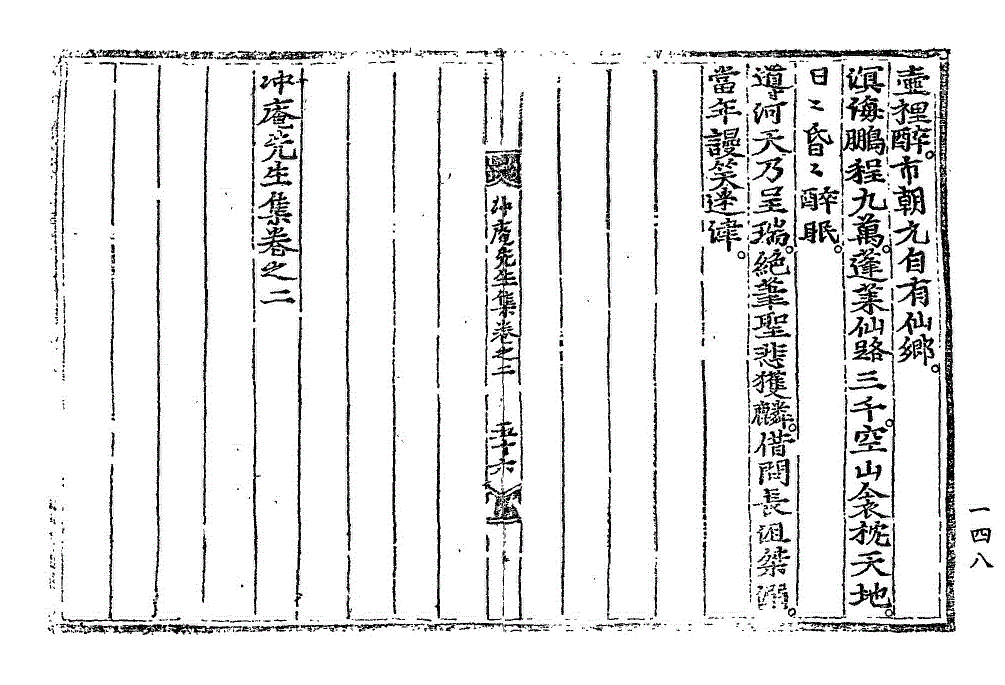 壺裡醉。市朝尤自有仙鄕。
溟海鵬程九萬。蓬萊仙路三千。空山衾枕天地。
日〻昏〻醉眠。
導河天乃呈瑞。絶筆聖悲獲麟。借問長沮桀溺。
當年謾笑迷津。
冲庵先生集卷之二
五十六
冲庵先生集卷之二
一四八